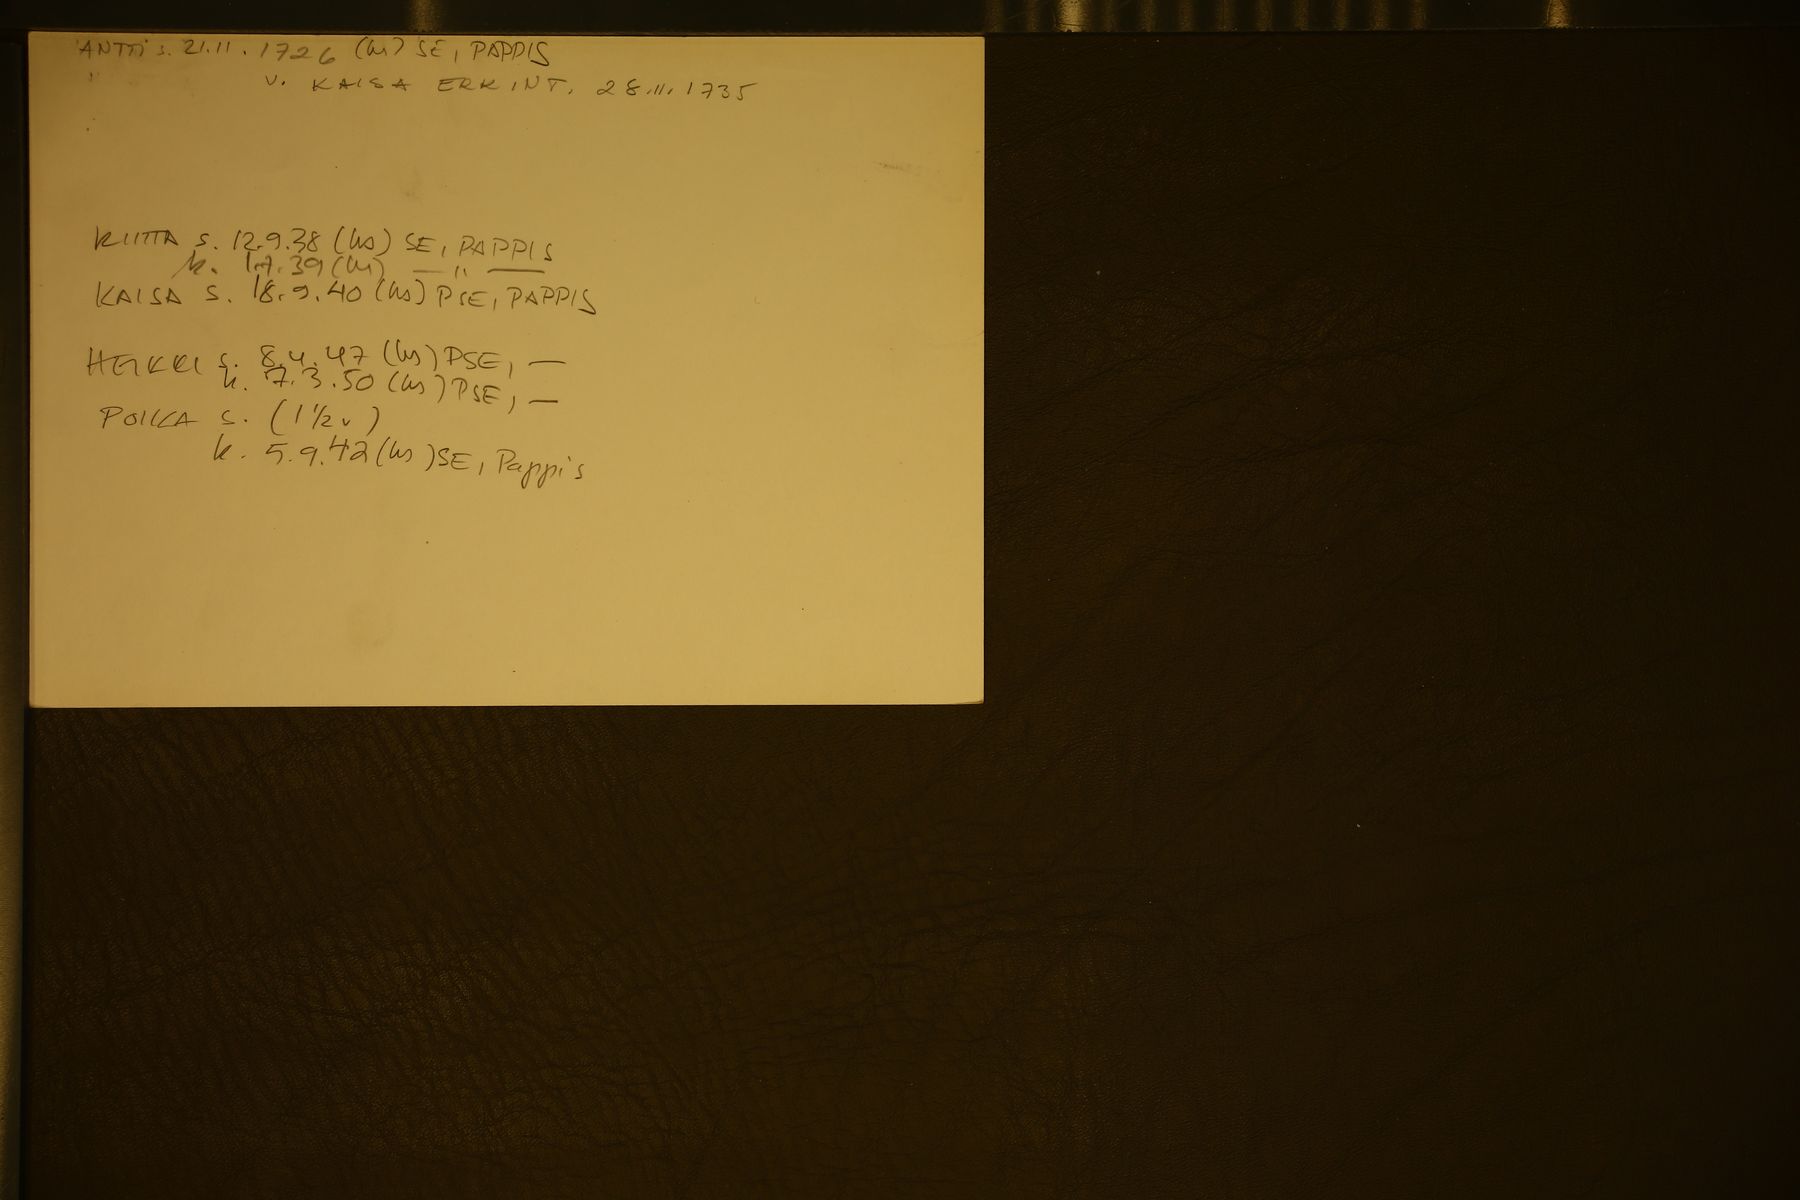 ANTTI s. 21.11.1726 (hs) SE, PAPPIS
" v. KAISA ERKINT. 28.11.1735
RIITTA s. 12.9.38 (hs) SE, PAPPIS
k. 1.7.39 (hs) — " —
KAISA s. 18.9.40 (hs) PSE, PAPPIS
HEIKKI s. 8.4.47 (hs) PSE, —
k. 7.3.50 (hs) PSE, —
POIKA s. (1 1/2 v)
k. 5.9.42 (hs) SE, Pappis